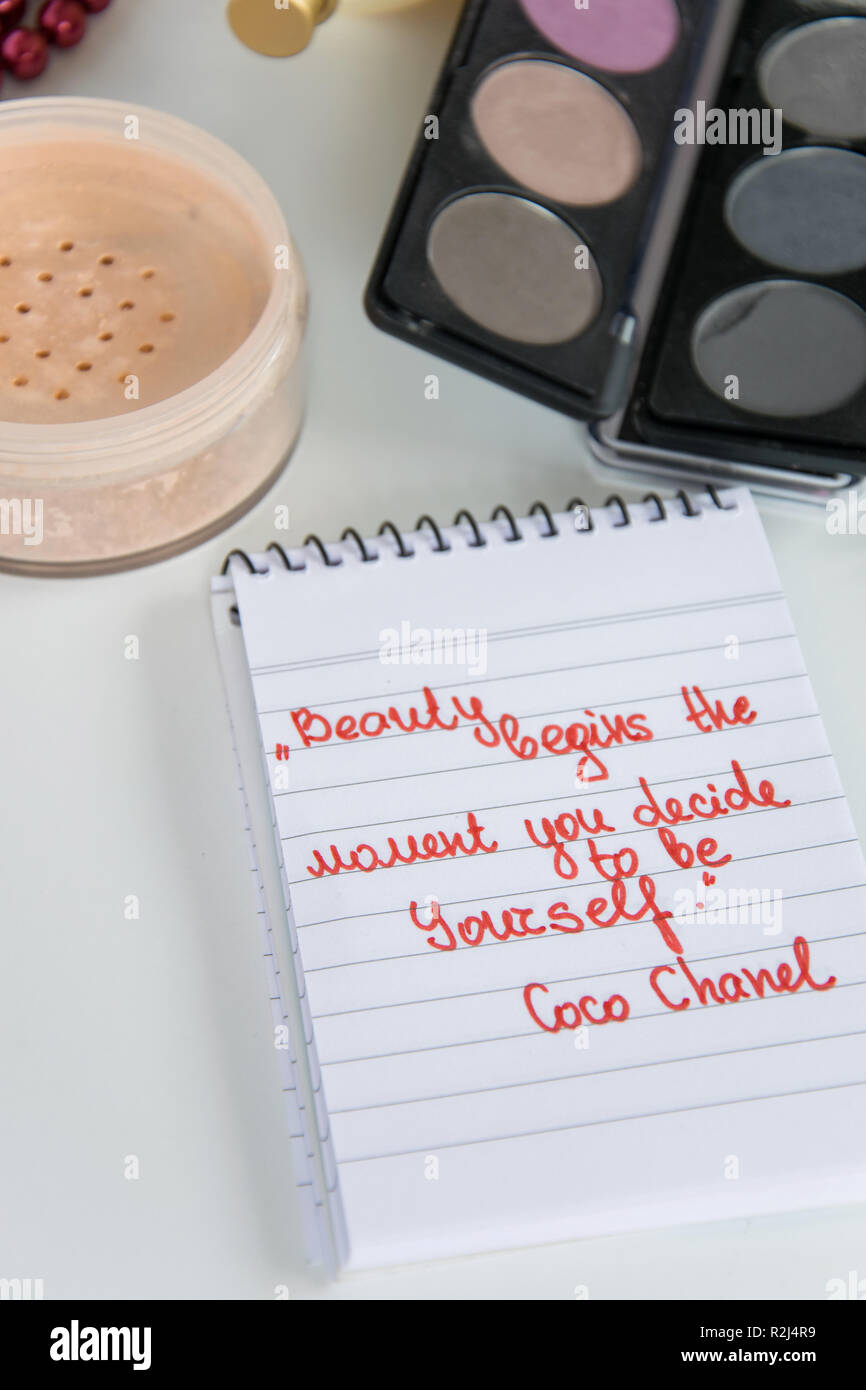 „Beauty begins the
moment you decide
to be
yourself.“
Coco Chanel
alamy
alamy
Image ID: R2J4R9
www.alamy.com